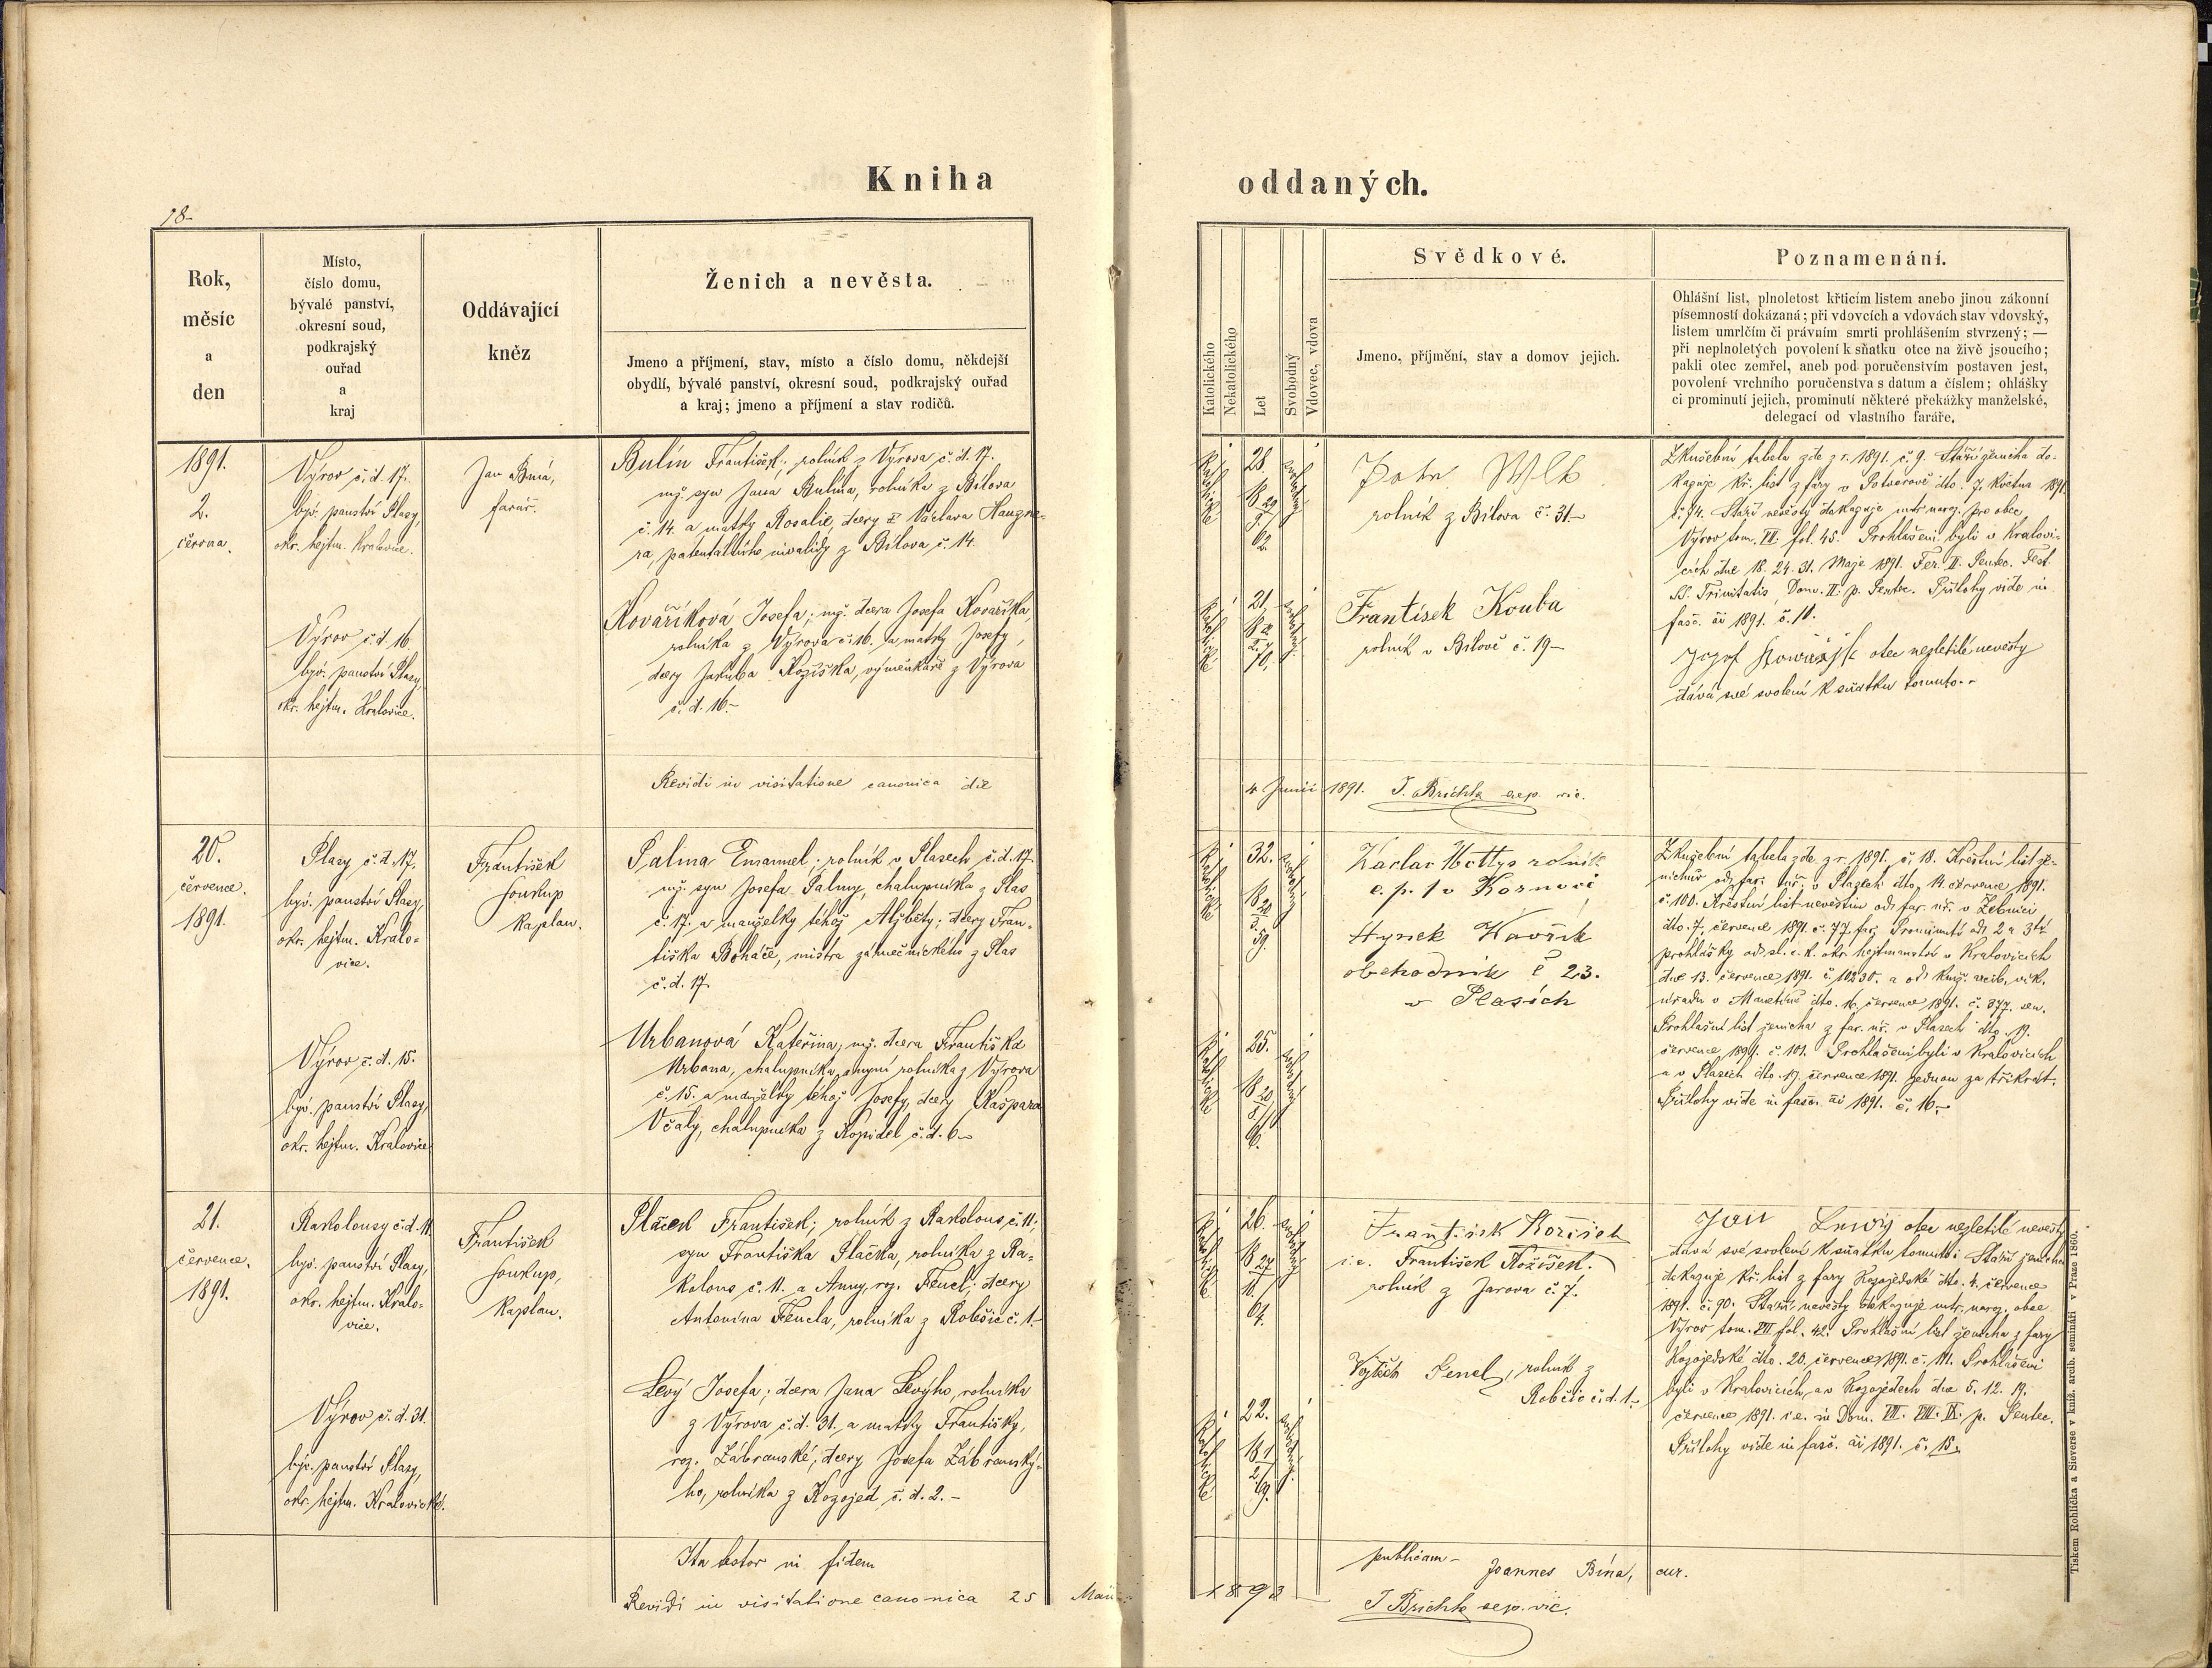 Kniha oddaných.
18-
Rok,
měsíc
a
den
Místo,
číslo domu,
bývalé panství,
okresní soud,
podkrajský
ouřad
a
kraj
Oddávající
kněz
Ženich a nevěsta.
Jmeno a příjmení, stav, místo a číslo domu, někdejší
obydlí, bývalé panství, okresní soud, podkrajský ouřad
a kraj; jmeno a příjmení a stav rodičů.
Katolického
Nekatolického
Let
Svobodný
Vdovec, vdova
Svědkové.
Jmeno, příjmění, stav a domov jejich.
Poznamenání.
Ohlášní list, plnoletost křticím listem anebo jinou zákonní
písemností dokázaná; při vdovcích a vdovách stav vdovský,
listem umrlčím či právním smrti prohlášením stvrzený; —
při neplnoletých povolení k sňatku otce na živě jsoucího;
pakli otec zemřel, aneb pod poručenstvím postaven jest,
povolení vrchního poručenstva s datum a číslem; ohlášky
ci prominutí jejich, prominutí některé překážky manželské,
delegací od vlastního faráře.
1891.
2.
června.
Výrov č. d. 17.
býv. panství Plasy,
okr. hejtm. Kralovice.
Výrov č. d. 16.
býv. panství Plasy,
okr. hejtm. Kralovice.
Jan Bína,
farář.
Bulín František; rolník z Výrova č. d. 17.
mž. syn Jana Bulína, rolníka z Bílova
č. 14. a matky Rosalie, dcery Václava Hauzne-
ra, patentálního invalidy z Bílova č. 14.
Kovaříková Josefa; mž. dcera Josefa Kovaříka,
rolníka z Výrova č. 16. a matky Josefy,
dcery Jakuba Kožíška, výměnkáře z Výrova
č. d. 16.-
Katolické
28.
18 29/9. 62.
svobodný
Katolické
21.
70.
svobodná
Petr Wlk
rolník z Bílova č. 31.-
František Kouba
rolník v Bílově č. 19-
Zkušební tabela zde z r. 1891. č. 9. Stáří ženicha do-
kazuje kř. list z fary v Potvorově dto. 7. května 1891.
č. 74. Stáří nevěsty dokazuje matr. naroz. pro obec
Výrov tom. VII. fol. 45. Prohlášeni byli v Kralovi-
cích dne 18. 24. 31. Maje 1891. Fer. II. Pentec. Fest.
SS. Trinitatis, Dom. II. p. Pentec. Přílohy vide in
fasc. ai 1891. č. 11.
otec nezletilé nevěsty
dává své svolení k sňatku tomuto.-
Revidi in visitatione canonica die 4 Junii 1891. J. Brichta aep. vic.
20.
července.
1891.
Plasy č. d. 17.
býv. panství Plasy,
okr. hejtm. Kralo-
vice.
Výrov č. d. 15.
býv. panství Plasy,
okr. hejtm. Kralovice
František
Soukup
kaplan.
Palma Emanuel; rolník v Plasech č. d. 17.
mž. syn Josefa Palmy, chalupníka z Plas
č. 17. a manželky téhož Alžběty; dcery Fran-
tiška Boháče, mistra zámečnického z Plas
č. d. 17.
Urbanová Kateřina; mž. dcera Františka
Urbana, chalupníka nyní rolníka z Výrova
č. 15. a manželky téhož Josefy, dcery Kašpara
Včaly, chalupníka z Kopidel č. d. 6.-
Katolické
32.
59.
svobodný
Katolické
25.
svobodná
rolník
č. p. 1 v
Hynek Kavřík
obchodník č 23.
v Plasích
Zkušební tabela zde z r. 1891. č. 18. Křestní list že-
nichův od far. úř. v Plasech dto. 14. července 1891.
č. 100. Křestní list nevěstin od far. úř. v Žebnici
dto. 7. července 1891. č. 77 far. Prominutí od 2 a 3tí
prohlášky od sl. c. k. okr. hejtmanství v Kralovicích
dne 13. července 1891. č. 10230. a od kníž. arcib. vik.
úřadu v Manětíně dto. 16. července 1891. č. 377.
Prohlašní list ženicha z far. úř. v Plasech dto. 19.
července 1891. č. 101. Prohlášeni byli v Kralovicích
a v Plasech dto. 19. července 1891. jednou za třikrát.
Přílohy vide in fasc. ai 1891. č. 16.-
21.
července.
1891.
Rakolousy č. d. 11
býv. panství Plasy,
okr. hejtm. Kralo-
vice.
Výrov č. d. 31.
býv. panství Plasy,
okr. hejtm. Kralovické.
František
Soukup,
kaplan.
Plaček František; rolník z Rakolous č. 11;
syn Františka Plačka, rolníka z Ra-
kolous č. 11. a Anny, roz. Fencl; dcery
Antonína Fencla, rolníka z Robčic č. 1.-
Levý Josefa; dcera Jana Levýho, rolníka
z Výrova č. d. 31. a matky Františky,
roz. Zábranské; dcery Josefa Zábranský-
ho, rolníka z Kozojed č. d. 2.-
Katolické
26.
64.
svobodný
Katolické
22.
svobodná
František Kožíšek
i. e. František Kožíšek.
rolník z Jarova č. 7.
Vojtěch Fencl, rolník z
Robčic č. d. 1.-
Jan otec nezletilé nevěsty
dává své svolení k sňatku tomuto. Stáří ženicha
dokazuje kř. list z fary Kozojedské dto. 4. července
1891. č. 90. Stáří nevěsty dokazuje matr. naroz. obce
Výrov tom. VII fol. 42. Prohlašní list ženicha z fary
Kozojedské dto. 20. července 1891. č. 111. Prohlášeni
byli v Kralovicích, a v Kozojedech dne 5. 12. 19.
července 1891. i. e. in Dom. VII. VIII. IX. p. Pentec.
Přílohy vide in fasc. ai 1891. č. 15.
Ita testor in fidem publicam - Joannes Bína, cur.
Revidi in visitatione canonica 25 Maii 1893 J Brichta aep. vic.
Tiskem Rohlíčka a Sieverse v kníž. arcib. semináři v Praze 1860.